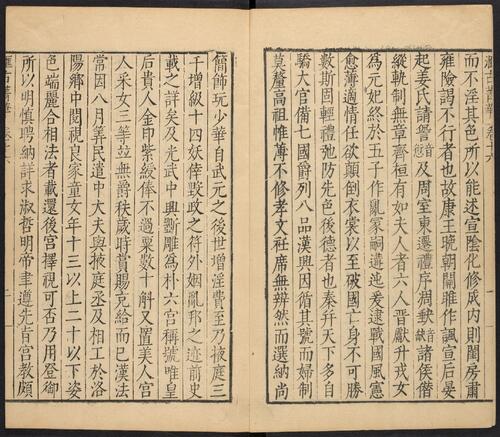 滙古菁華 卷十六
而不淫其色所以能述宣陰化修成内則閨房肅
雍險謁不行者也故康王晚朝關雎作諷宣后晏
起姜氏請諐音愆及周室東遷禮序凋缺諸侯僭
縱軌制無章齊桓有如夫人者六人晉獻升戎女
為元妃終於五子作亂冢嗣遘屯爰逮戰國風憲
愈薄適情任欲顛倒衣裳以至破國亡身不可勝
數斯固輕禮弛防先色後德者也秦并天下多自
驕大宮備七國爵列八品漢興因循其號而婦制
莫釐高祖帷薄不修孝文衽席無辨然而選納尚
簡飾玩少華自武元之後世增淫費至乃掖庭三
千增級十四妖倖毀政之符外姻亂邦之迹前史
載之詳矣及光武中興斵雕為朴六宮稱號唯皇
后貴人金印紫綬俸不過粟數十斛又置美人宮
人采女三等竝無爵秩歲時賞賜充給而已漢法
常因八月筭民遣中大夫與掖庭丞及相工於洛
陽鄉中閱視良家童女年十三以上二十以下姿
色端麗合相法者載還後宮擇視可否乃用登御
所以明慎聘納詳求淑哲明帝聿遵先旨宮教頗
滙古菁華 卷十六